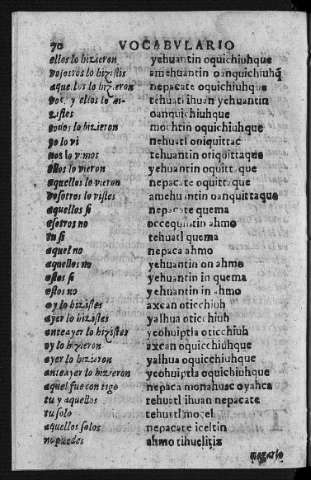 70 VOCABVLARIO
ellos lo hizieron yehuantin oquichiuhque
vosotros lo hizistis amehuantin oanquichiuhq̃
aquellos lo hizieron nepacate oquichiuhque
vos, y ellos lo hi- tehuatl ihuan yehuantin
zistes oanquichiuhque
todos lo hizieron mochtin oquichiuhque
yo lo vi nehuatl oniquittac
nos lo vimos tehuantin otiquittaque
ellos lo vieron yehuantin oquittaque
aquellos lo vieron nepacate oquittaque
vosotros lo vistes amehuantin oanquittaque
aquellos si nepacate quema
esotros no occequintin ahmo
tu si tehuatl quema
aquel no nepaca ahmo
aquellos no yehuantin on ahmo
estos si yehuantin in quema
estos no yehuantin in ahmo
oy lo hizistes axcan oticchiuh
ayer lo hizistes yalhua oticchiuh
anteayer lo hizistes yeohuiptla oticchiuh
oy lo hizieron axcan oquicchiuhque
ayer lo hizieron yalhua oquicchiuhque
anteayer lo hizieron yeohuiptla oquicchiuhque
aquel fue contigo nepaca monahuac oyahca
tu y aquellos tehuatl ihuan nepacate
tu solo tehuatl mocel
aquellos solos nepacate iceltin
no puedes ahmo tihuelitiz